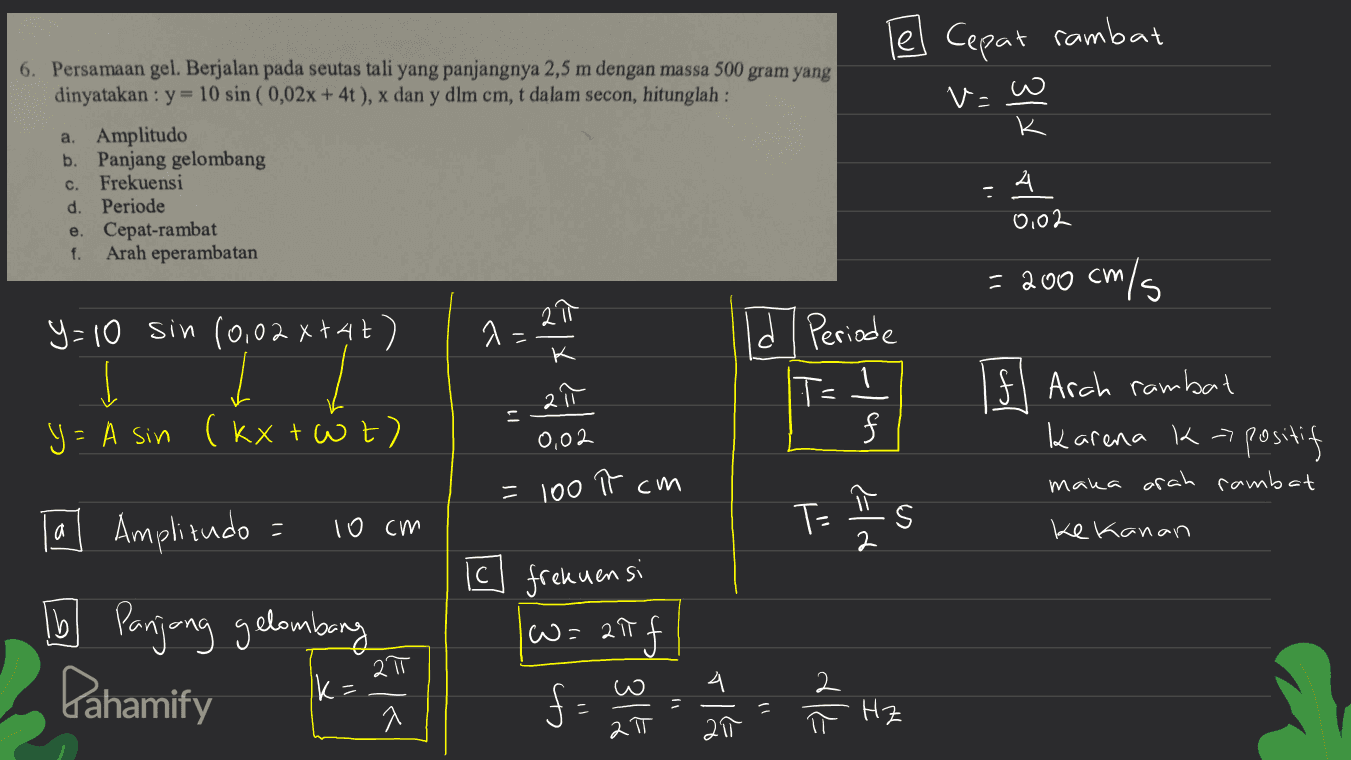 6. Persamaan gel. Berjalan pada seutas tali yang panjangnya 2,5 m dengan massa 500 gram yang
dinyatakan : y = 10 sin ( 0,02x + 4t ), x dan y dlm cm, t dalam secon, hitunglah :
a. Amplitudo
b. Panjang gelombang
c. Frekuensi
d. Periode
e. Cepat-rambat
f. Arah eperambatan
y=10 sin (0,02x+4t)
y=A sin (kx+ωt)
a Amplitudo = 10 cm
b Panjang gelombang
k=2π/λ
λ=2π/k
=2π/0,02
=100π cm
c frekuensi
ω=2πf
f=ω/2π=4/2π=2/π Hz
d Periode
T=1/f
T=π/2 s
e Cepat rambat
v=ω/k
=4/0,02
=200 cm/s
f Arah rambat
karena k → positif
maka arah rambat
ke kanan
Pahamify